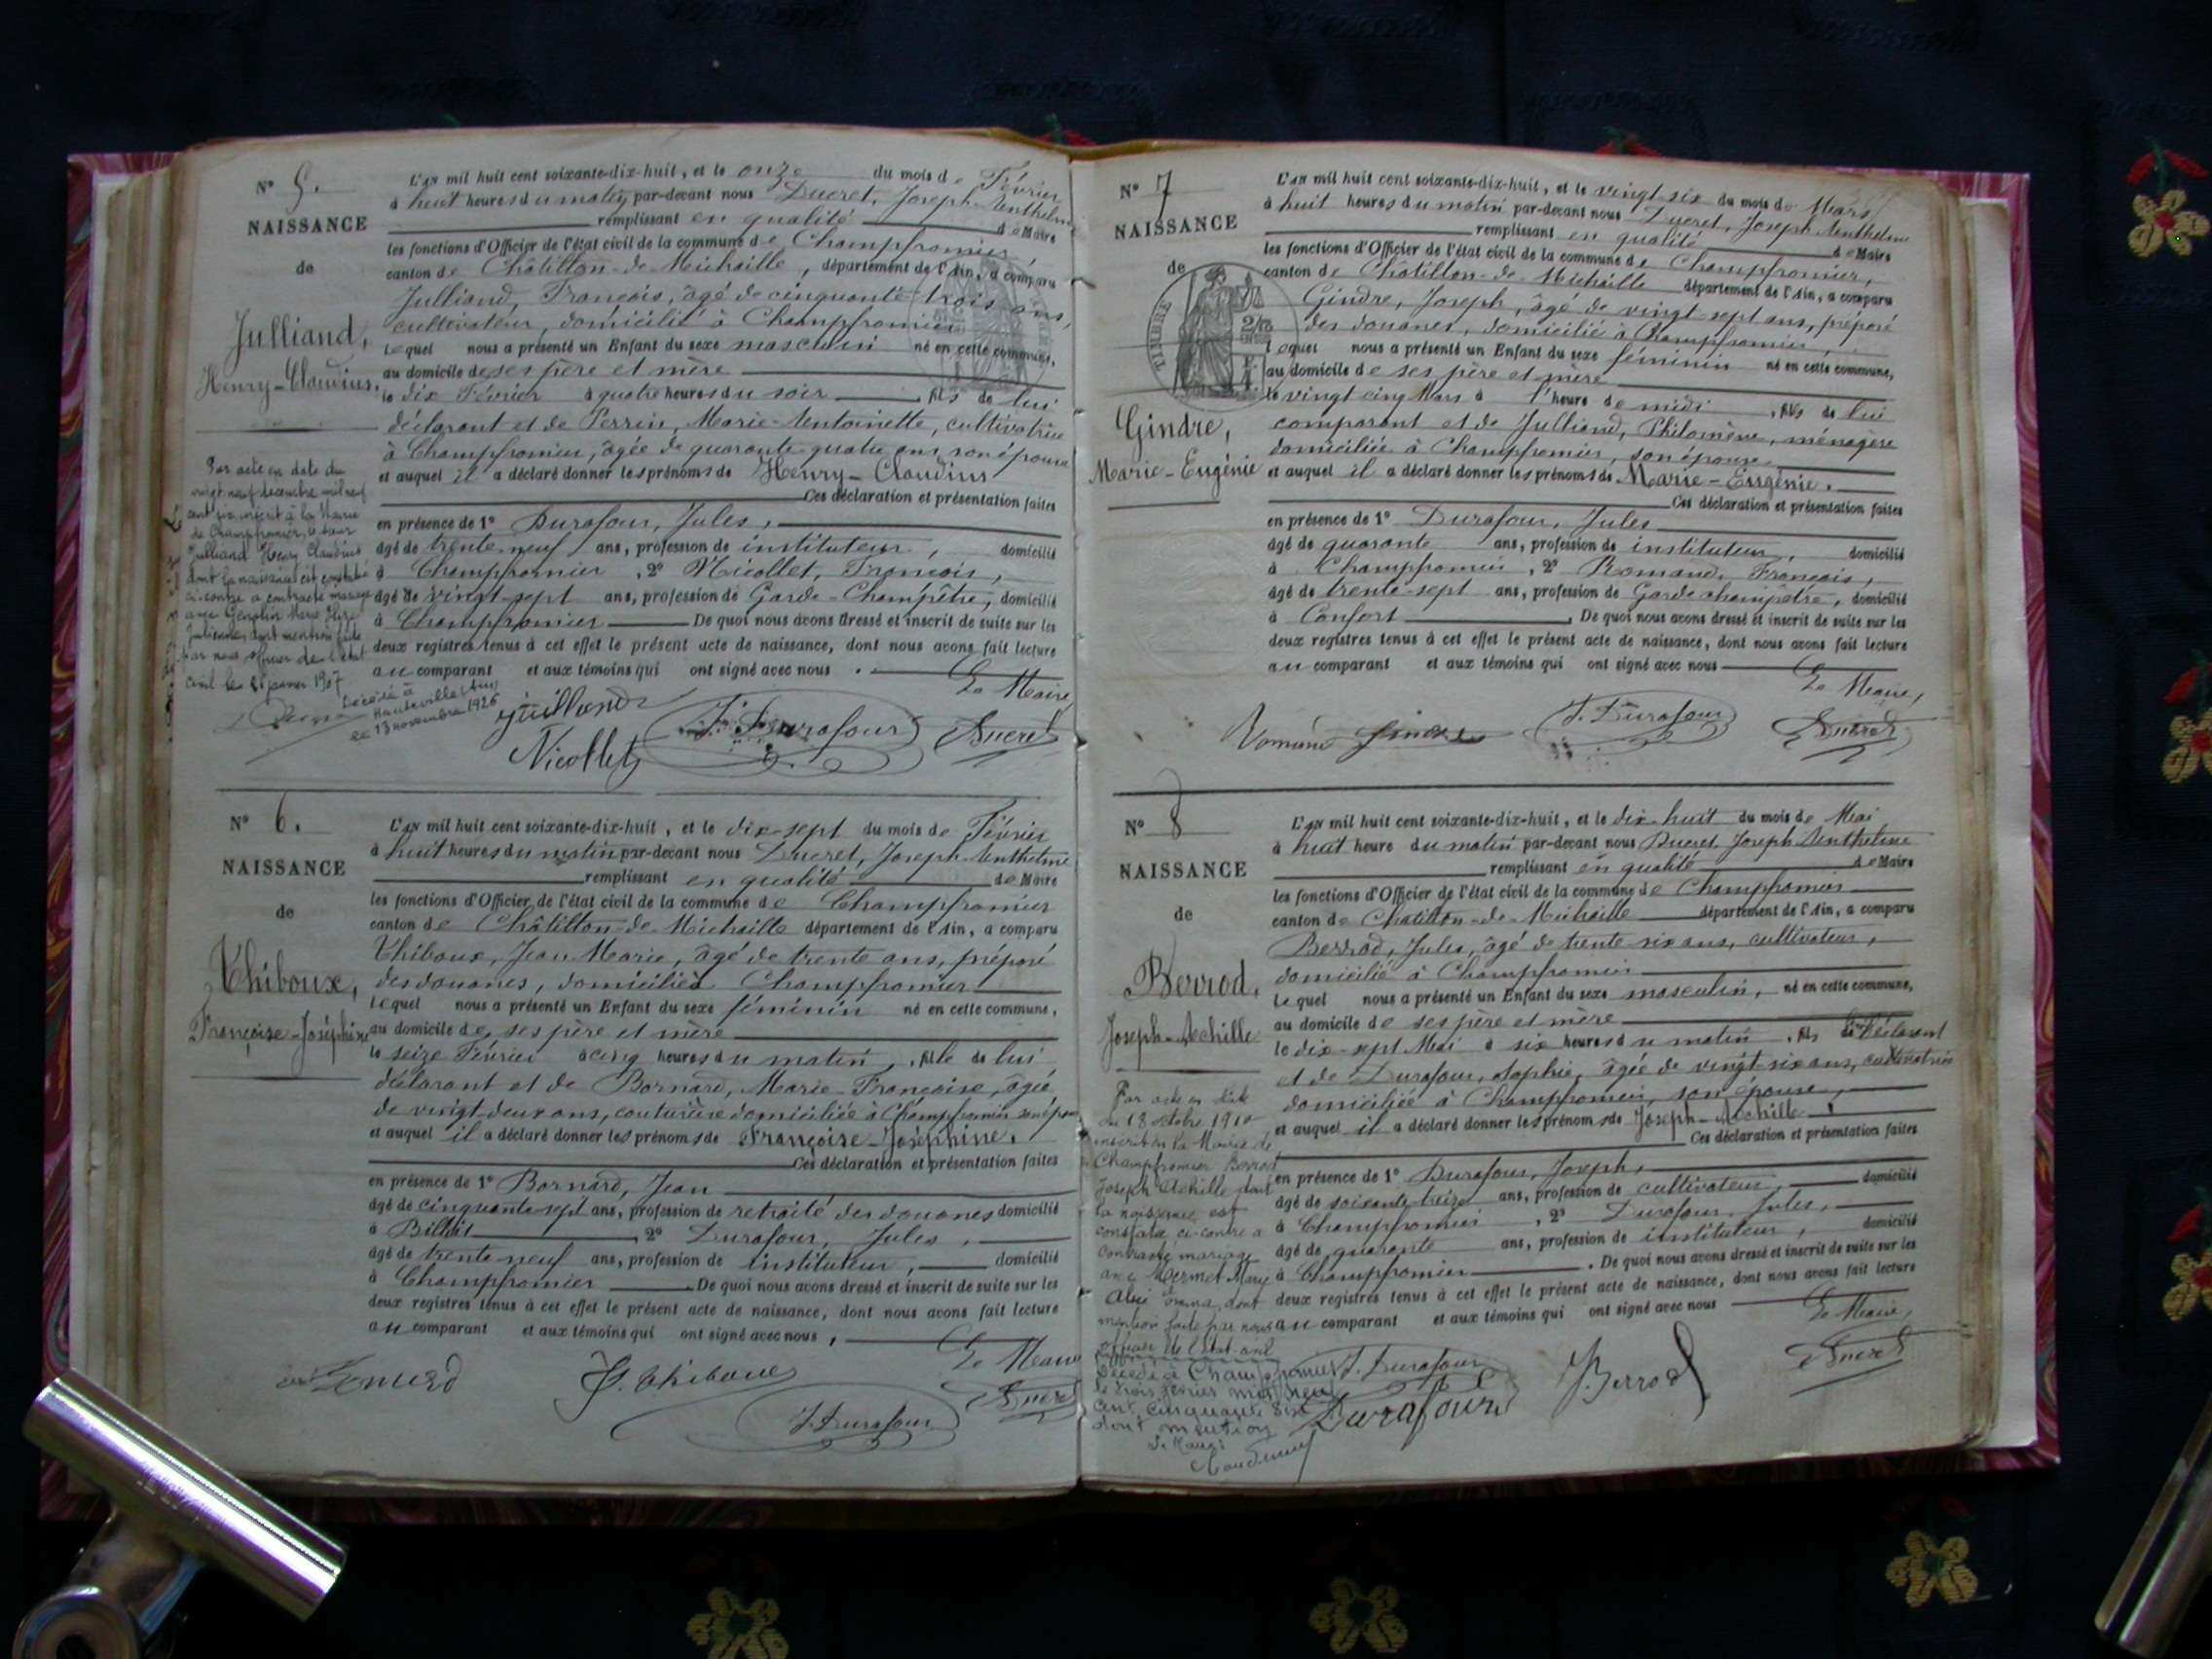 N° 5.
NAISSANCE
de
Julliand,
Henry-Claudius.
Par acte en date du
vingt neuf décembre mil neuf
cent six inscrit à la Mairie
de Champfromier, le sieur
Julliand Henry Claudius
dont la naissance est constatée
ci-contre a contracté mariage
avec Marie
Julienne, dont mention faite
par nous officier de l'état
civil le 21 janvier 1907
Décédé à
Hauteville (Ain)
le 13 novembre 1926
L'an mil huit cent soixante-dix-huit, et le onze du mois de Février
à huit heures du matin par-devant nous Ducret, Joseph-Anthelme
remplissant en qualité de Maire
les fonctions d'Officier de l'état civil de la commune de Champfromier,
canton de Châtillon-de-Michaille, département de l'Ain, a comparu
Julliand, François, âgé de cinquante-trois ans,
cultivateur, domicilié à Champfromier
lequel nous a présenté un Enfant du sexe masculin né en cette commune,
au domicile de ses père et mère
le dix Février à quatre heures du soir, fils de lui
déclarant et de Perrin, Marie-Antoinette, cultivatrice
à Champfromier, âgée de quarante quatre ans son épouse
et auquel il a déclaré donner les prénoms de Henry-Claudius
Ces déclaration et présentation faites
en présence de 1° Durafour, Jules,
âgé de trente-neuf ans, profession de instituteur, domicilié
à Champfromier, 2° Nicollet, François,
âgé de vingt-sept ans, profession de Garde-Champêtre, domicilié
à Champfromier De quoi nous avons dressé et inscrit de suite sur les
deux registres tenus à cet effet le présent acte de naissance, dont nous avons fait lecture
au comparant et aux témoins qui ont signé avec nous.
Le Maire,
Julliand J. Durafour Ducret
Nicollet
N° 6.
NAISSANCE
de
Thiboux,
Françoise-Joséphine
L'an mil huit cent soixante-dix-huit, et le dix-sept du mois de Février
à huit heures du matin par-devant nous Ducret, Joseph-Anthelme
remplissant en qualité de Maire
les fonctions d'Officier de l'état civil de la commune de Champfromier
canton de Châtillon-de-Michaille département de l'Ain, a comparu
Thiboux, Jean Marie, âgé de trente ans, préposé
des douanes, domicilié à Champfromier
lequel nous a présenté un Enfant du sexe féminin né en cette commune,
au domicile de ses père et mère
le seize Février à cinq heures du matin, fille de lui
déclarant et de Bornard, Marie-Françoise, âgée
de vingt-deux ans, couturière domiciliée à Champfromier son épouse
et auquel il a déclaré donner les prénoms de Françoise-Joséphine.
Ces déclaration et présentation faites
en présence de 1° Bornard, Jean
âgé de cinquante-sept ans, profession de retraité des douanes domicilié
à Billiat, 2° Durafour, Jules,
âgé de trente neuf ans, profession de instituteur, domicilié
à Champfromier De quoi nous avons dressé et inscrit de suite sur les
deux registres tenus à cet effet le présent acte de naissance, dont nous avons fait lecture
au comparant et aux témoins qui ont signé avec nous,
Le Maire
Thiboux Ducret
J. Durafour
N° 7
NAISSANCE
de
TIMBRE
Gindre,
Marie-Eugénie
L'an mil huit cent soixante-dix-huit, et le vingt-six du mois de Mars
à huit heures du matin par-devant nous Ducret, Joseph-Anthelme
remplissant en qualité de Maire
les fonctions d'Officier de l'état civil de la commune de Champfromier,
canton de Châtillon-de-Michaille département de l'Ain, a comparu
Gindre, Joseph, âgé de vingt-sept ans, préposé
des douanes, domicilié à Champfromier,
lequel nous a présenté un Enfant du sexe féminin né en cette commune,
au domicile de ses père et mère
le vingt cinq Mars à l'heure de midi, fils de lui
comparant et de Julliand, Philomène, ménagère
domiciliée à Champfromier, son épouse
et auquel il a déclaré donner les prénoms de Marie-Eugénie.
Ces déclaration et présentation faites
en présence de 1° Durafour, Jules
âgé de quarante ans, profession de instituteur, domicilié
à Champfromier, 2° Romand, François,
âgé de trente-sept ans, profession de Garde champêtre, domicilié
à Confort. De quoi nous avons dressé et inscrit de suite sur les
deux registres tenus à cet effet le présent acte de naissance, dont nous avons fait lecture
au comparant et aux témoins qui ont signé avec nous
Le Maire,
Romand Gindre J. Durafour Ducret
N° 8
NAISSANCE
de
Berrod,
Joseph-Achille
Par acte en date
du 18 octobre 1910
inscrit à la Mairie de
Champfromier Berrod
Joseph Achille dont
la naissance est
constatée ci-contre a
contracté mariage
avec Mermet Mary
Alix Emma, dont
mention faite par nous
officier de l'état-civil
Décédé à Champfromier
le trois février mil neuf
cent cinquante six
dont mention
L'an mil huit cent soixante-dix-huit, et le dix-huit du mois de Mai
à huit heure du matin par-devant nous Ducret, Joseph Anthelme
remplissant en qualité de Maire
les fonctions d'Officier de l'état civil de la commune de Champfromier
canton de Châtillon-de-Michaille département de l'Ain, a comparu
Berrod, Jules, âgé de trente-six ans, cultivateur,
domicilié à Champfromier
lequel nous a présenté un Enfant du sexe masculin, né en cette commune,
au domicile de ses père et mère
le dix-sept Mai à six heures du matin, fils du déclarant
et de Durafour, Sophie, âgée de vingt-six ans, cultivatrice
domiciliée à Champfromier, son épouse,
et auquel il a déclaré donner les prénoms de Joseph-Achille.
Ces déclaration et présentation faites
en présence de 1° Durafour, Joseph,
âgé de soixante-treize ans, profession de cultivateur, domicilié
à Champfromier, 2° Durafour, Jules,
âgé de quarante ans, profession de instituteur, domicilié
à Champfromier. De quoi nous avons dressé et inscrit de suite sur les
deux registres tenus à cet effet le présent acte de naissance, dont nous avons fait lecture
au comparant et aux témoins qui ont signé avec nous
Le Maire,
J. Durafour J Berrod Ducret
Durafour